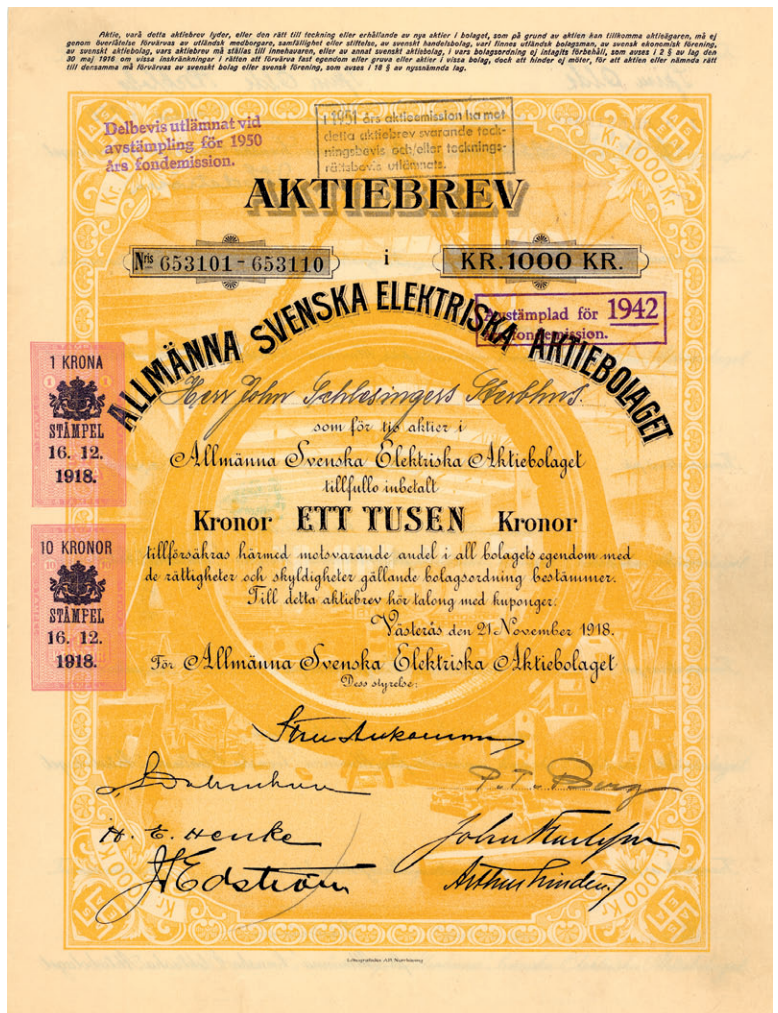 Aktie, varå detta aktiebrev lyder, eller den rätt till teckning eller erhållande av nya aktier i bolaget, som på grund av aktien kan tillkomma aktieägaren, må ej
genom överlåtelse förvärvas av utländsk medborgare, samfällighet eller stiftelse, av svenskt handelsbolag, vari finnes utländsk bolagsman, av svensk ekonomisk förening,
av svenskt aktiebolag, vars aktiebrev må ställas till innehavaren, eller av annat svenskt aktiebolag, i vars bolagsordning ej intagits förbehåll, som avses i 2 § av lag den
30 maj 1916 om vissa inskränkningar i rätten att förvärva fast egendom eller gruva eller aktier i vissa bolag, dock att hinder ej möter, för att aktien eller nämnda rätt
till densamma må förvärvas av svenskt bolag eller svensk förening, som avses i 18 § av nyssnämnda lag.
Delbevis utlämnat vid
avstämpling för 1950
års fondemission.
I 1951 års aktieemission ha mot
detta aktiebrev svarande teck-
ningsbevis och/eller tecknings-
rättsbevis utlämnats.
Kr. 1000 Kr.
AKTIEBREV
Nris 653101-653110
i
KR. 1000 KR.
Avstämplad för 1942
fondemission.
ALLMÄNNA SVENSKA ELEKTRISKA AKTIEBOLAGET
1 KRONA
STÄMPEL
16. 12.
1918.
Herr John Schlesingers Sterbhus.
som för tio aktier i
Allmänna Svenska Elektriska Aktiebolaget
tillfullo inbetalt
Kronor ETT TUSEN Kronor
tillförsäkras härmed motsvarande andel i all bolagets egendom med
de rättigheter och skyldigheter gällande bolagsordning bestämmer.
Till detta aktiebrev hör talong med kuponger.
10 KRONOR
STÄMPEL
16. 12.
1918.
Västerås den 21 November 1918.
För Allmänna Svenska Elektriska Aktiebolaget
Dess styrelse:
P. T. Berg
H. E. Henke
John Karlsson
J S Edström
Arthur Lindén